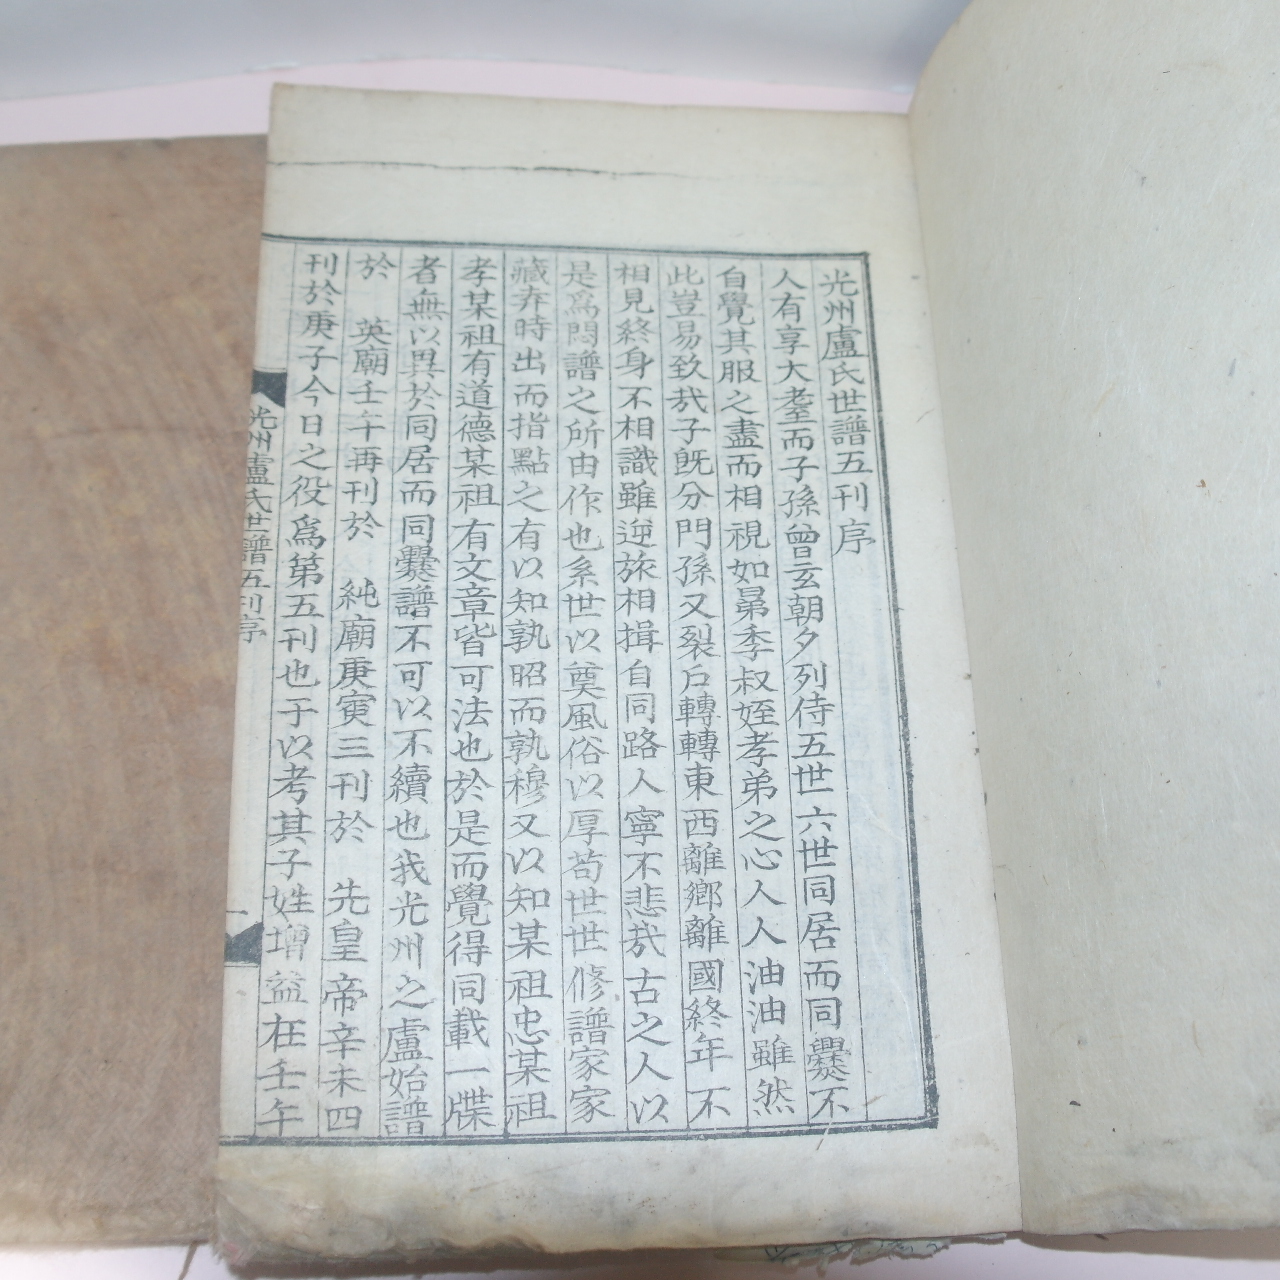 光州盧氏世譜五刊序
人有享大耋而子孫曾玄朝夕列侍五世六世同居而同爨不
自覺其服之盡而相視如昴季叔姪孝弟之心人人油油雖然
此豈易致哉子旣分門孫又裂戶轉轉東西離鄕離國終年不
相見終身不相識雖逆旅相揖自同路人寧不悲哉古之人以
是爲悶譜之所由作也系世以奠風俗以厚苟世世修譜家家
藏弆時出而指點之有以知孰昭而孰穆又以知某祖忠某祖
孝某祖有道德某祖有文章皆可法也於是而覺得同載一牒
者無以異於同居而同爨譜不可以不續也我光州之盧始譜
於 英廟壬午再刊於 純廟庚寅三刊於 先皇帝辛未四
刊於庚子今日之役爲第五刊也于以考其子姓增益在壬午
光州盧氏世譜五刊序 一